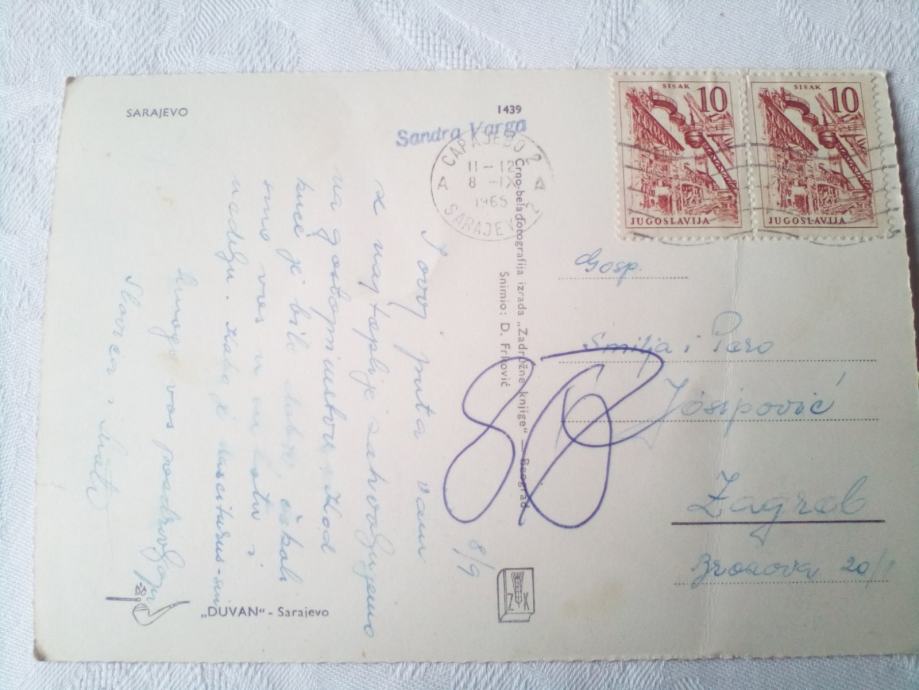 SARAJEVO
1439
Sandra Varga
САРАЈЕВО 2
11-12
A 8-IX A
1965
SARAJEVO 2
SISAK 10
JUGOSLAVIJA
SISAK 10
JUGOSLAVIJA
Crno-bela fotografija izrada „Zadružne knjige“ — Beograd
Snimio: D. Frković
Gosp.
Smilja i Pero
Josipović
Zagreb
20/1
8/9
I ovog puta vam
se najtoplije zahvaljujemo
na gostoprimstvu. Kod
kuće je bilo čekali
smo vas u i
nedelju.
mnogo vas pozdravljaju
Slavica i
ZK
„DUVAN“ - Sarajevo